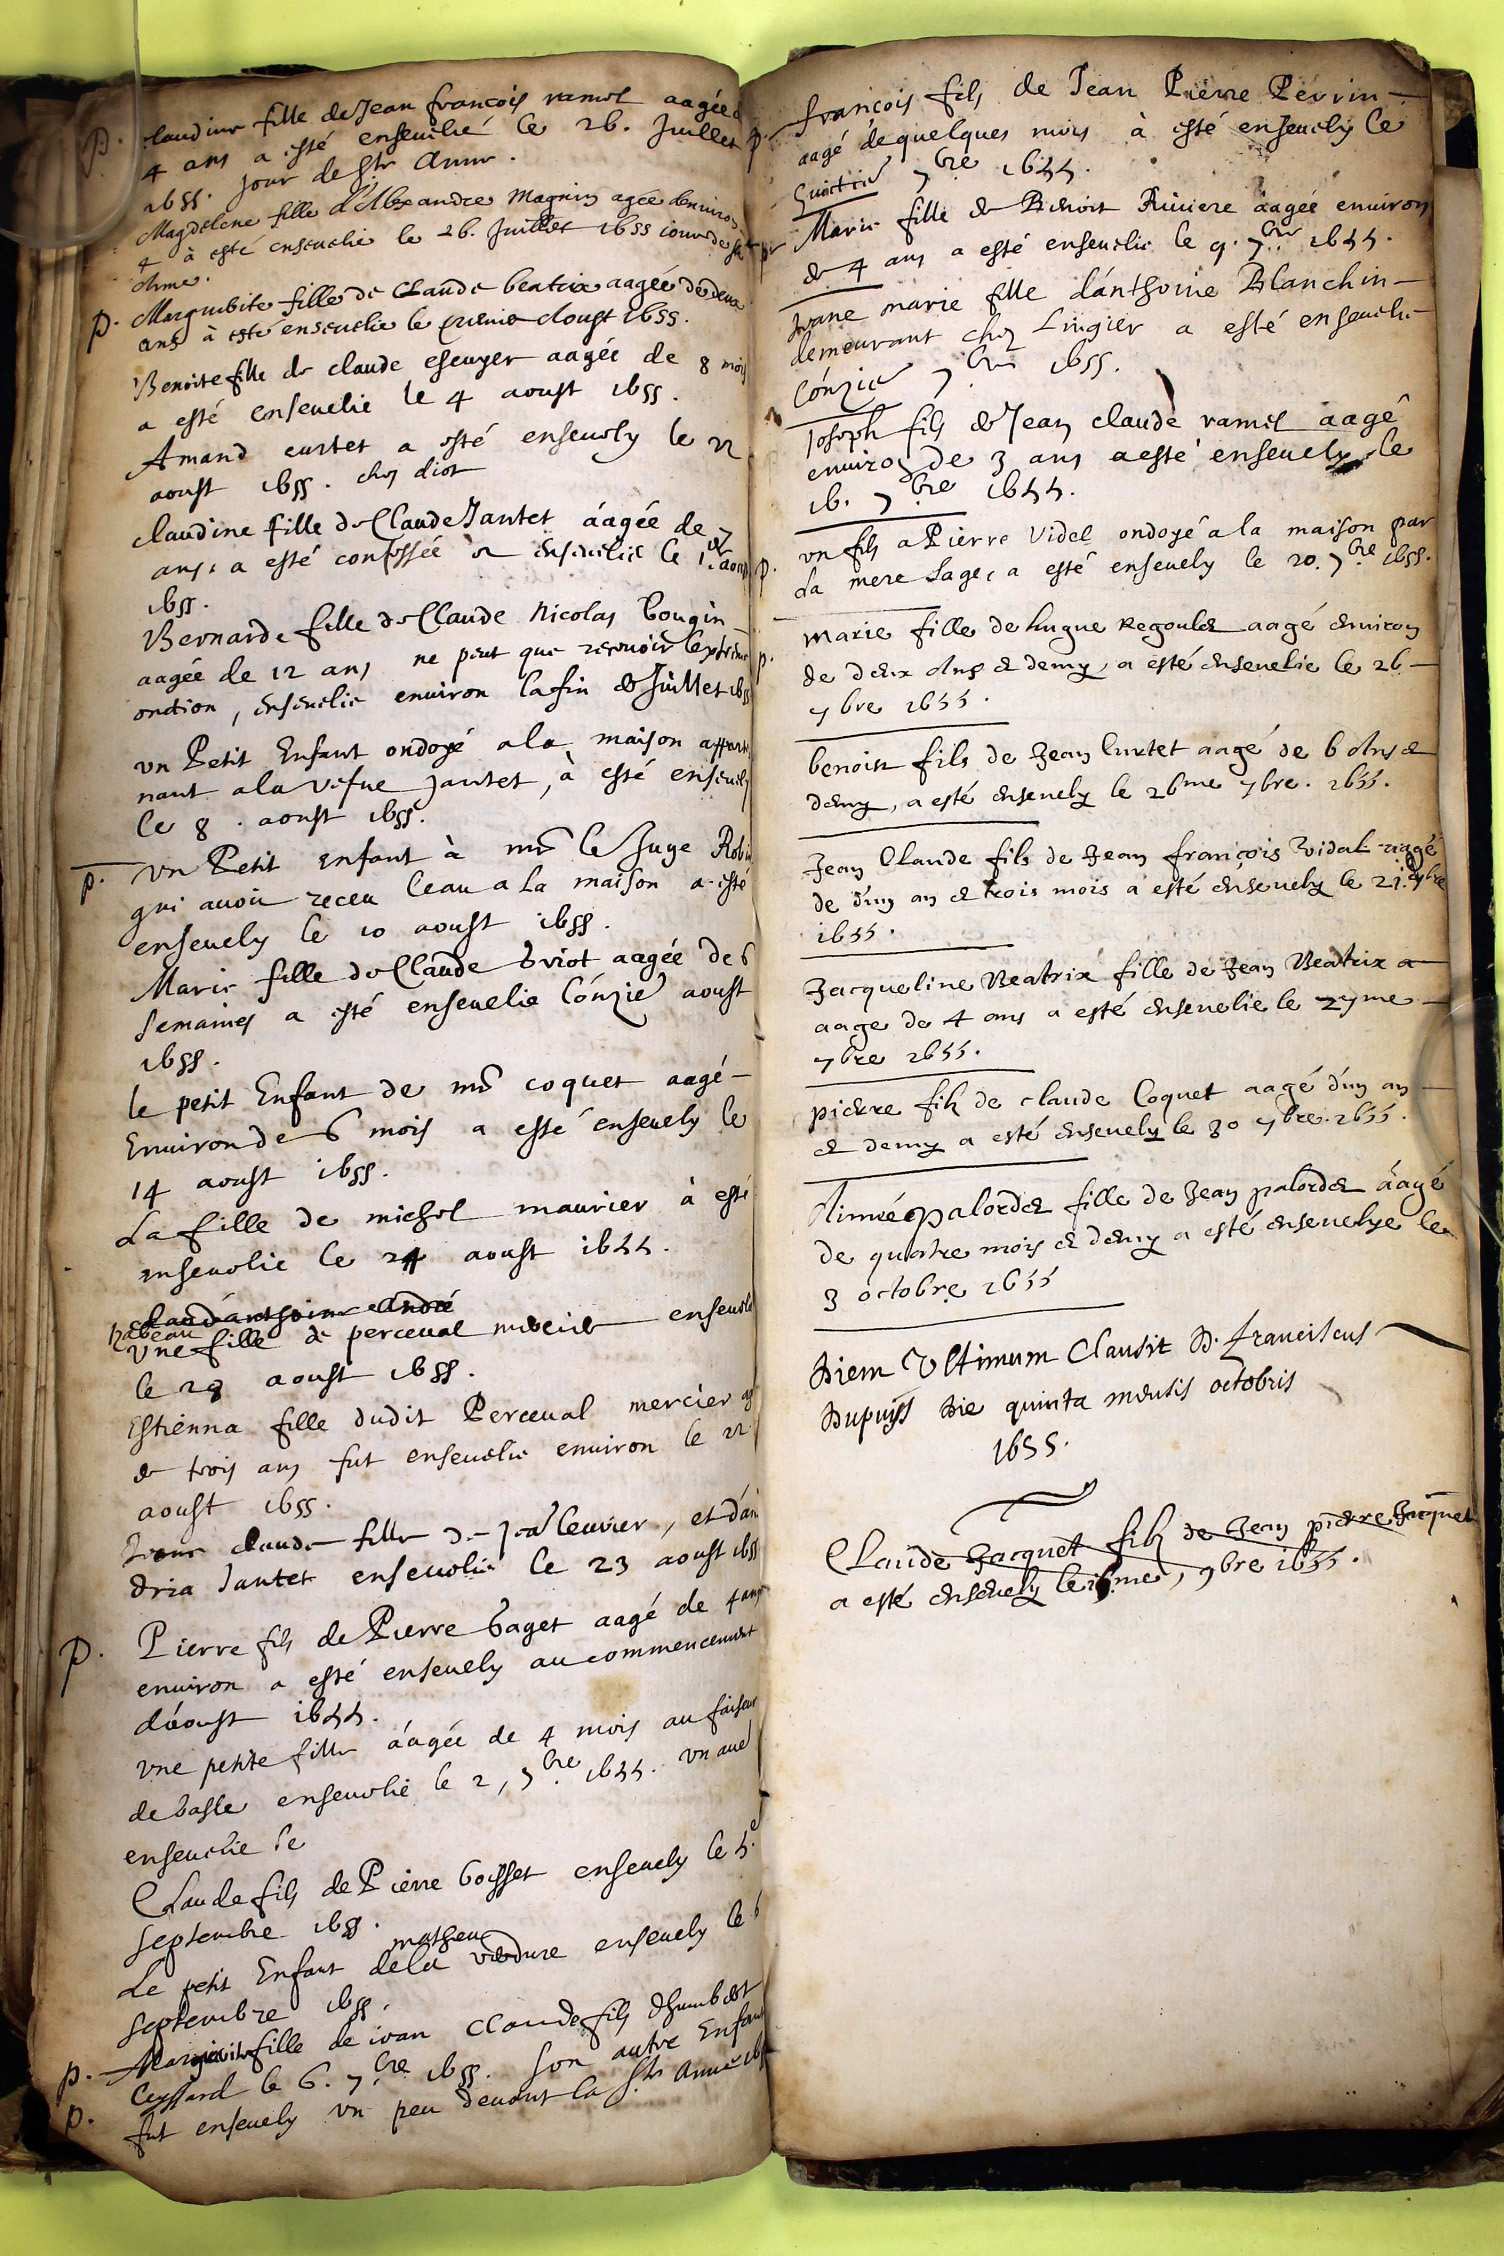 p. claudine fille de Jean francois ramel aagée d
4 ans a esté ensevelie le 26. Juillet
1655. Jour de Ste Anne.
Magdelene fille d'Alexandre Magnin agée denviron
4 à esté ensevelie le 26. Juillet 1655 iour de ste
Anne.
p. Marguerite fille de Claude beatrix aagée de deux
ans à esté ensevelie le Aoust 1655.
Benoite fille de claude escuyer aagée de 8 mois
a esté ensevelie le 4 aoust 1655.
Amand curtet a esté ensevely le 22
aoust 1655. chez diot
claudine fille de Claude Jantet áagée de
ans. a esté confessée et ensevelie le aoust
1655.
Bernarde fille de Claude Nicolas Gougin
aagée de 12 ans ne peut que recevoir lextreme
onction, ensevelie environ la fin de Juillet 1655
un Petit Enfant ondoyé a la maison apparte
nant a la vefve Jantet, à esté ensevely
le 8. aoust 1655.
p. un Petit enfant à mr le Juge Robin
qui avoit receu leau a la maison a esté
ensevely le 10 aoust 1655.
Marie fille de Claude briot aagée de 6
semaines a esté ensevelie lónzie aoust
1655.
le petit Enfant de mr coquet aagé
Environ de 6 mois a esté ensevely le
14 aoust 1655.
La fille de michel maurier à esté
ensevelie le 24 aoust 1655.
claud'anthoine André
ysabeau
Une fille de perceval mercier ensevelie
le 28 aoust 1655.
Estienna fille dudit Perceval mercier ag
de trois ans fut ensevelie environ le 22
aoust 1655.
Jeane claude fille de Jean leuvier, et d'an
dria Jantet ensevelie le 23 aoust 1655
p. Pierre fils de Pierre baget aagé de 4 ans
environ a esté ensevely au commencement
dáoust 1655.
Une petite fille áagée de 4 mois au faiseur
de basle ensevelie le 2, 7bre 1655. un aué
ensevelie le
Claude fils de Pierre boisset ensevely le 5.e
septembre 1655.
matheu
Le petit Enfant dela verdure ensevely le 6
septembre 1655.
p. Marguerite fille de ivan Claude fils dhumbert
Ceyssard le 6. 7bre 1655. son autre Enfant
p. fut ensevely un peu devant la Ste Anne 1655
p. françois fils de Jean Pierre Perrin
aagé de quelques mois à esté ensevely le
huictie 7bre 1655.
pr Marie fille de Benoist Riviere aagée environ
de 4 ans a esté ensevelie le 9. 7bre 1655.
Jeane marie fille dánthoine Blanchin
demeurant chez Lingier a esté ensevelie
lónzie 7bre 1655.
Joseph fils de Jean claude ramel aagé
environ de 3 ans a esté ensevely le
16. 7bre 1655.
p. un fils a Pierre Videl ondoyé a la maison par
La mere sage, a esté ensevely le 20. 7bre 1655.
p. Marie fille de hugue Regoulet aagé Environ
de deux Ans et demy, a esté Ensevelie le 26
7bre 1655.
benoist fils de Jean Curtet aagé de 6 Ans et
demy, a esté Ensevely le 26me 7bre. 1655.
Jean Claude fils de Jean françois Vidal aagé
de d'un an et trois mois a esté énsevely le 21. 7bre
1655.
Jacqueline Beatrix fille de Jean Beatrix a
aage de 4 ans a esté Ensevelie le 27me
7bre 1655.
pierre fils de claude Coquet aagé d'un an
et demy a esté Ensevely le 30 7bre. 1655.
Aimée palordet fille de Jean palordet áagé
de quatre mois et demy a esté Ensevelye le
3 octobre 1655
Diem Ultimum Clausit D. franciscus
Dupuys Die quinta mensis octobris
1655.
Claude Jacquet fils de Jean pierre Jacquet
a esté Ensevely le me, 9bre 1655.